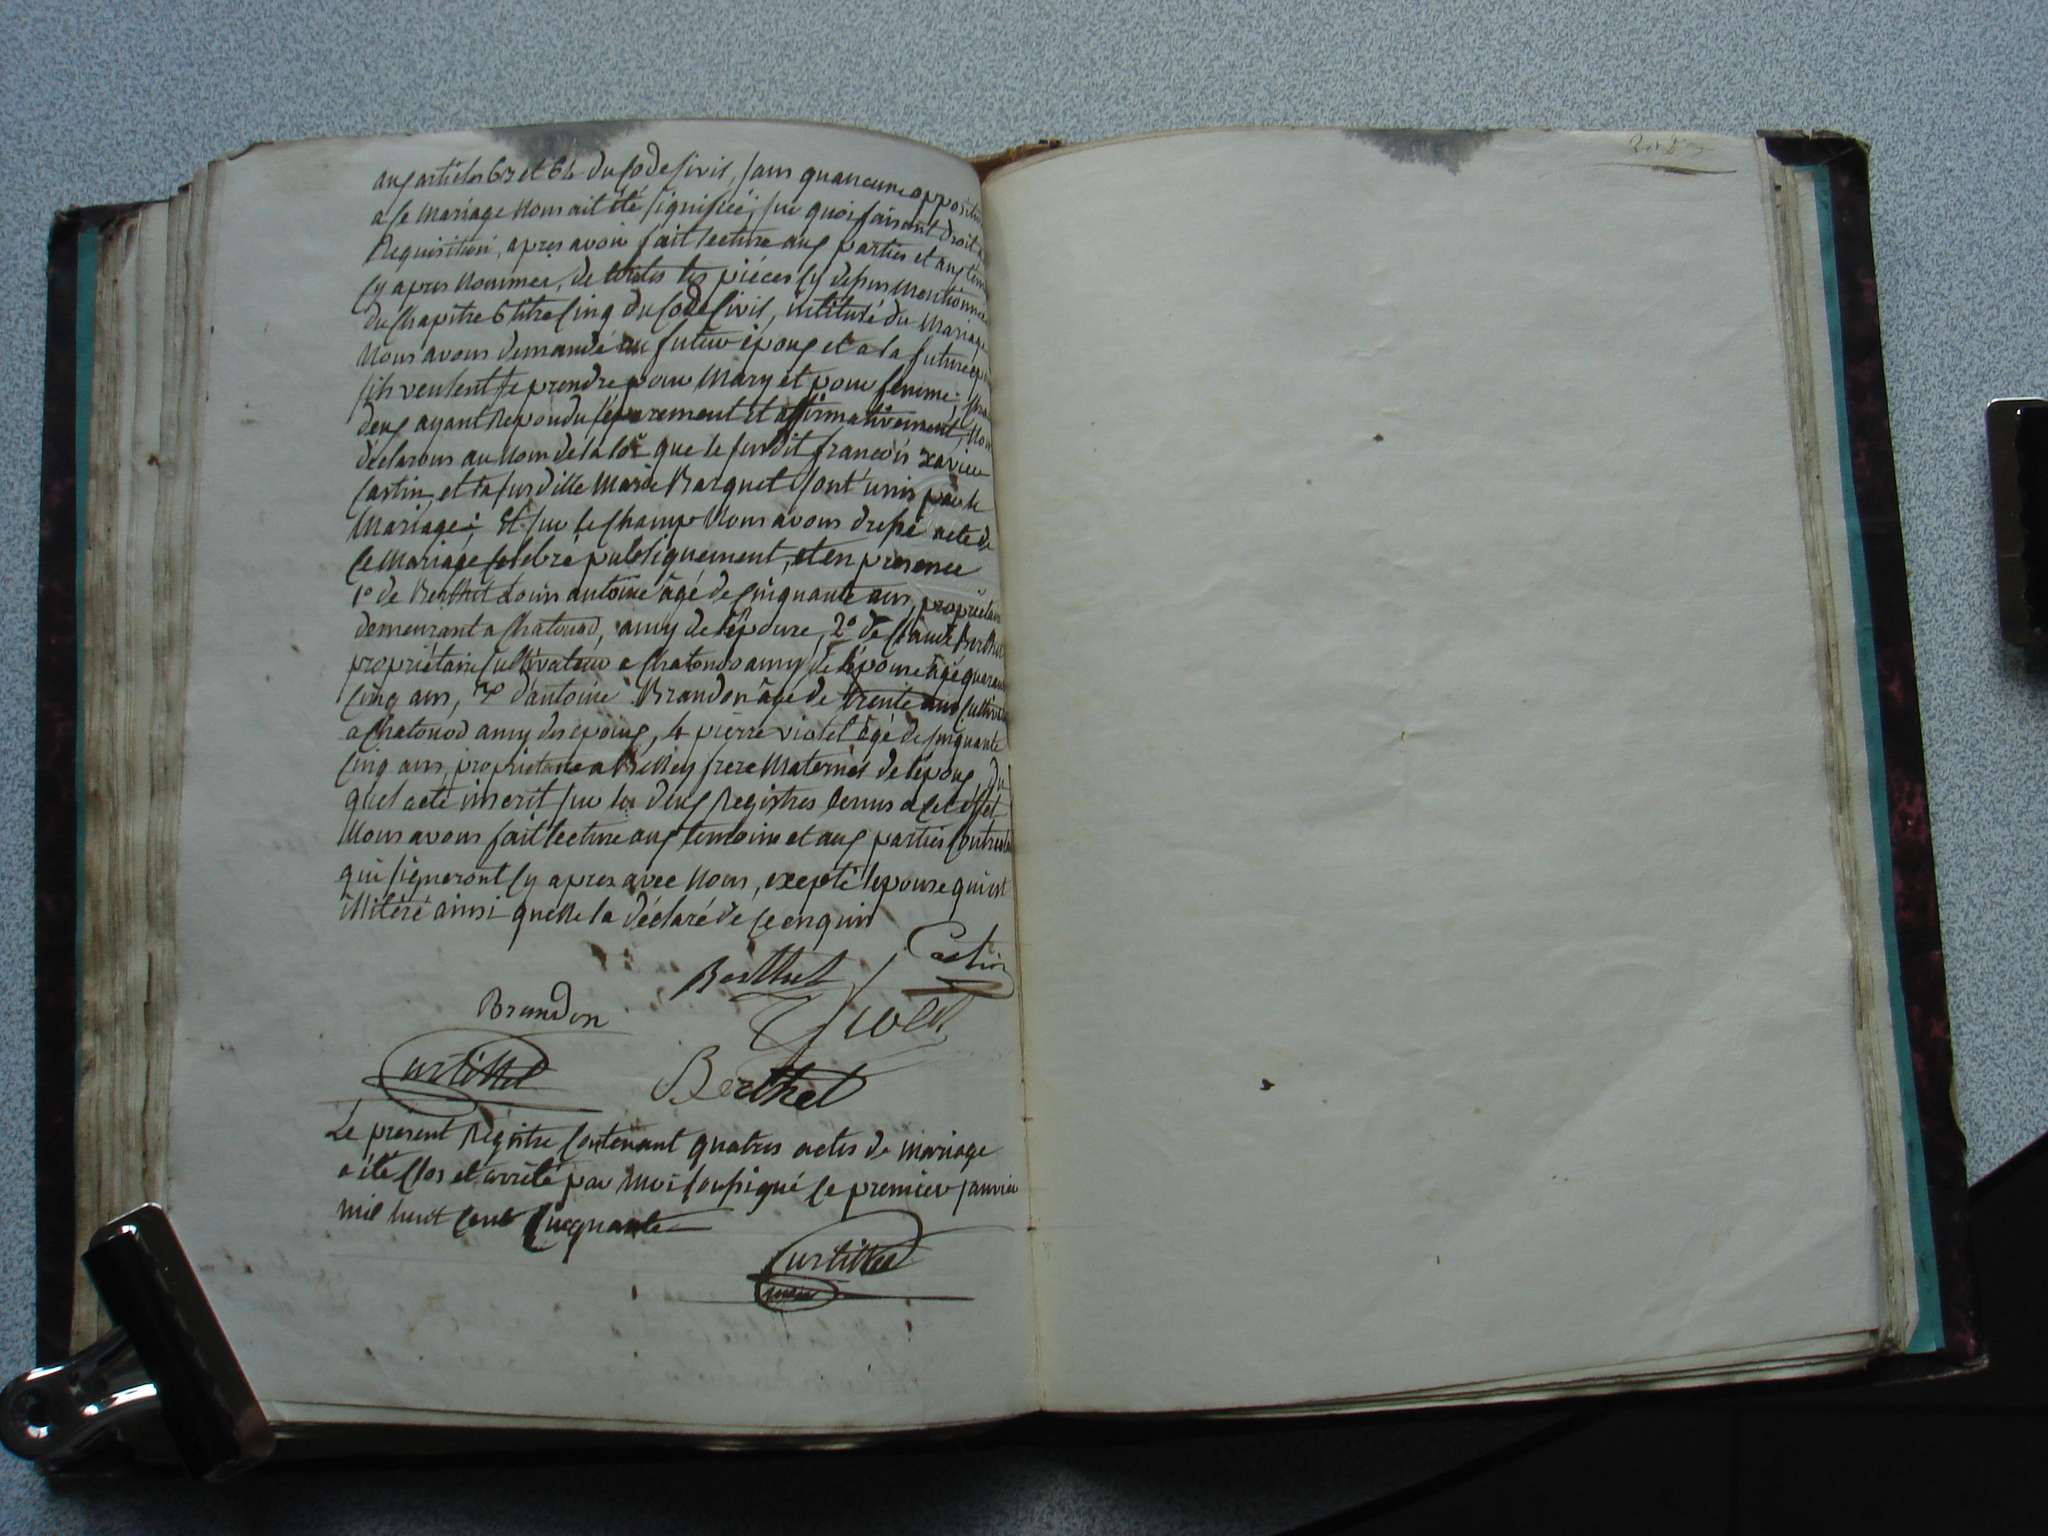 aux articles 63 et 64 du Code Civil, sans quaucune opposition
a ce Mariage Nous ait été signifiée; sur quoi faisant droit a
Requisition, apres avoir fait lecture aux parties et aux tem
cy apres Nommés, de toutes les piéces cy dessus Mentionnées
du Chapitre 6 titre Cinq du Code Civil, intitulé du Mariage
Nous avons demandé au futeur époux et a la future
s'ils veulent se prendre pour Mary et pour femme;
deux ayant Repondu séparement et affirmativement, Nous
déclarons au Nom de la loi que le susdit francois xavier
Castin, et la susditte Marie Barquet sont unis par le
Mariage; Et sur le Champ Nous avons dressé acte de
ce Mariage celebré publiquement, et en presence
1° de Berthet Louis antoine âgé de Cinquante ans, propriétaire
demeurant a Chatonod, amy de l'épouse, 2° de Claude Berthet
propriétaire Cultivateur a Chatonod amy de l'épouse âgé quarante
Cinq ans, 3° d'antoine Brandon âgé de trente ans Cultiv
a Chatonod amy des époux, 4 pierre violet âgé de Cinquante
Cinq ans, propriétaire a Belley frere Maternel de l'époux, du
quel acte inscrit sur les deux Registres tenus a cet éffet
Nous avons fait lecture aux temoins et aux parties
qui signeront cy apres avec Nous, exepté l'epouse qui est
illitéré ainsi quelle la déclaré de ce enquis
Castin
Berthet
Brandon
Violet
Curtillet
Berthet
Le present Régistre Contenant quatres actes de mariage
a été Clos et arrêté par Moi soussigné le premier janvier
mil huit cent Cinquante
Curtillet
maire